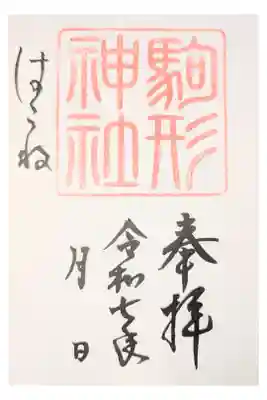 駒形
神社
奉拝
令和七年
月 日
はこね